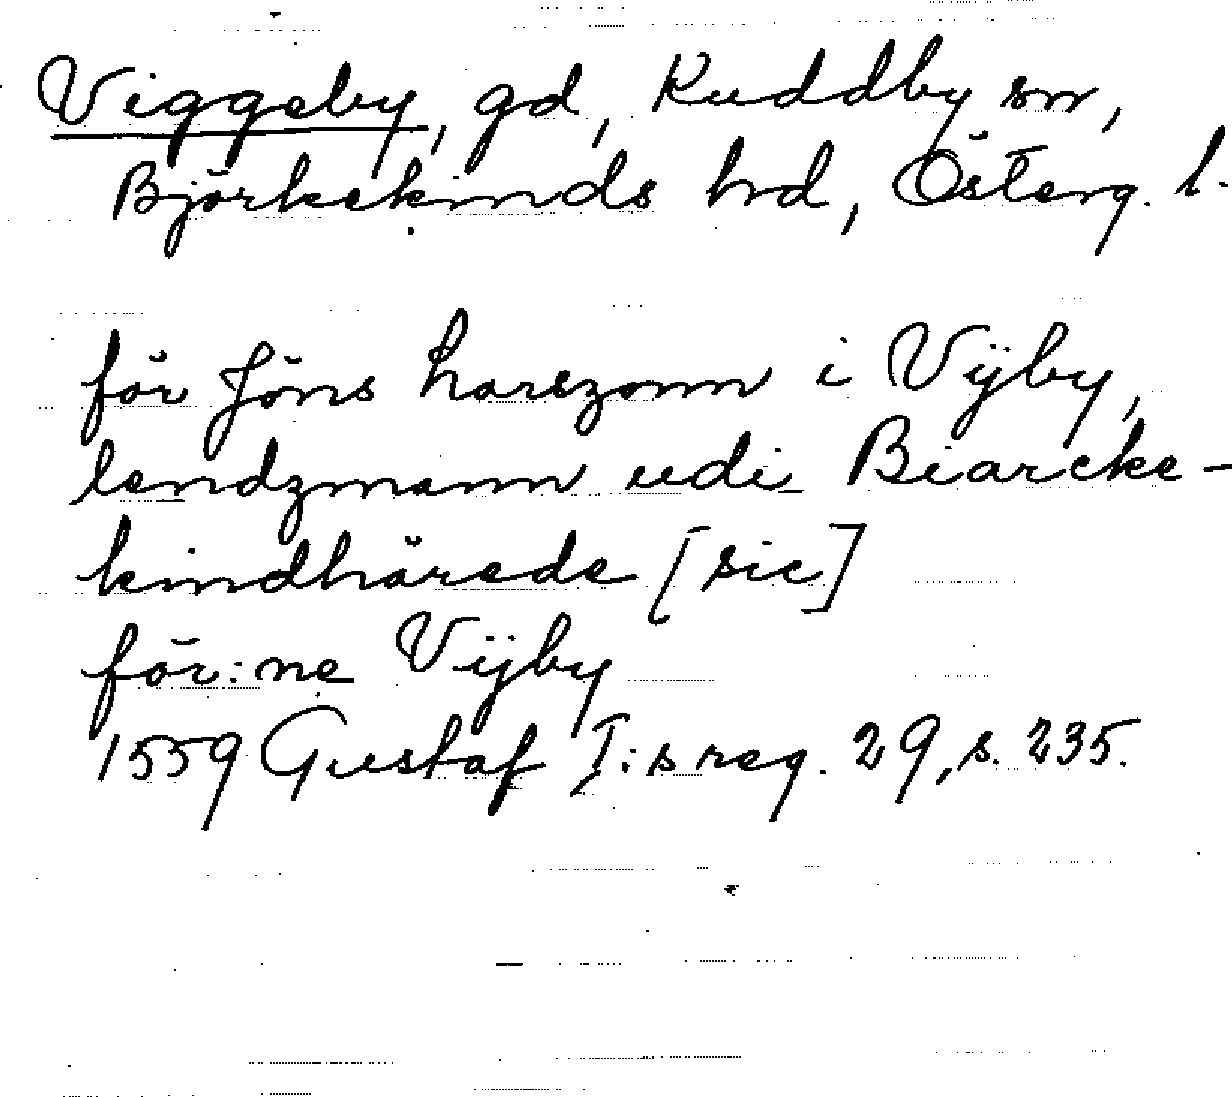 Viggeby, gd, Kuddby sn,
Björkekinds hrd, Österg. l.
för Jöns harszonn i Vijby,
lendzmann udi Biarcke-
kindhärede [sic]
för:ne Vijby
1559 Gustaf I:s reg. 29, s. 235.